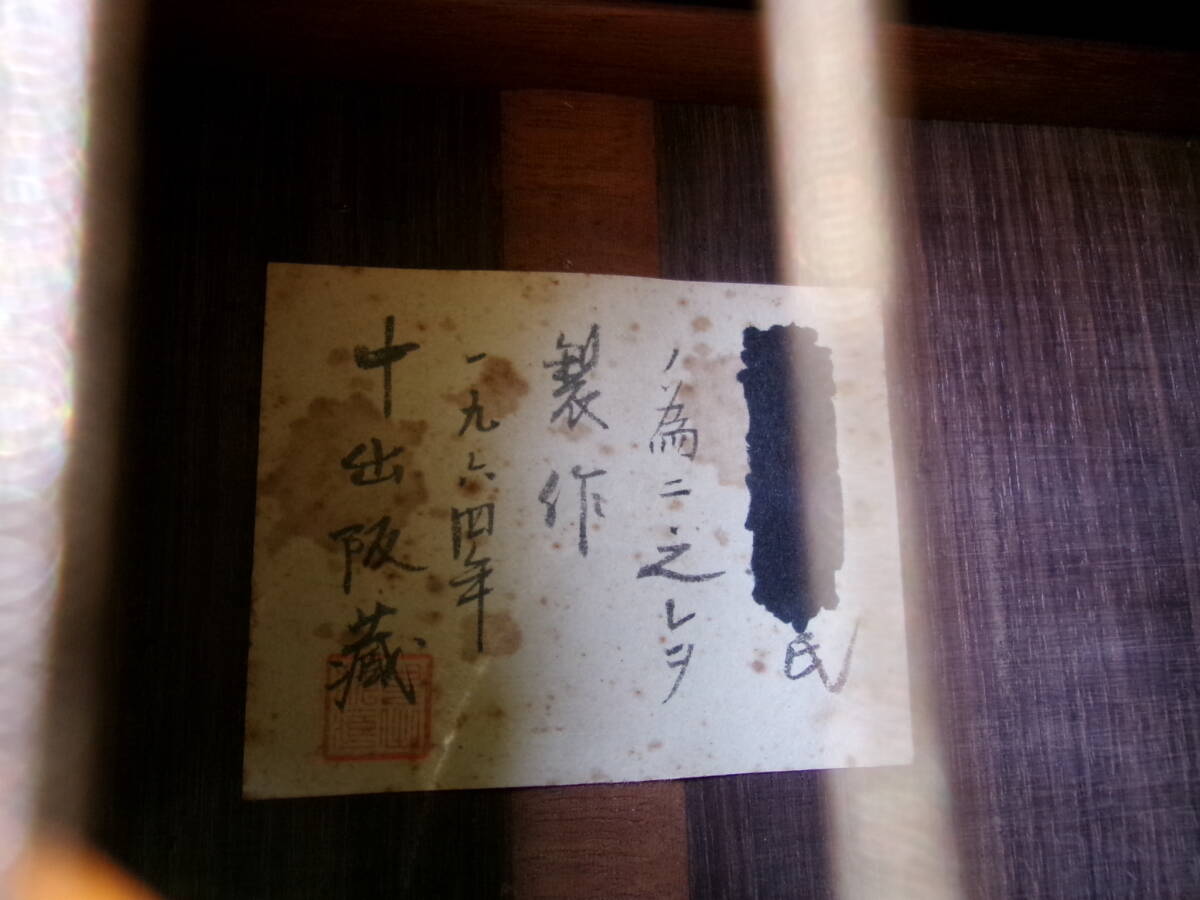 氏
ノ為ニ之レヲ
製作
一九六四年
中出阪藏